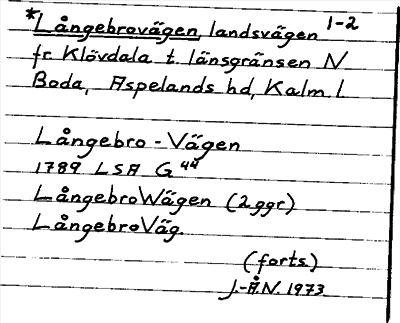 *Långebrovägen, landsvägen 1-2
fr. Klövdala t. länsgränsen N
Boda, Aspelands hd, Kalm. l
Långebro-Vägen
1789 LSA G 44
LångebroWägen (2 ggr)
LångebroVäg.
(forts.)
J.-Å.N. 1973